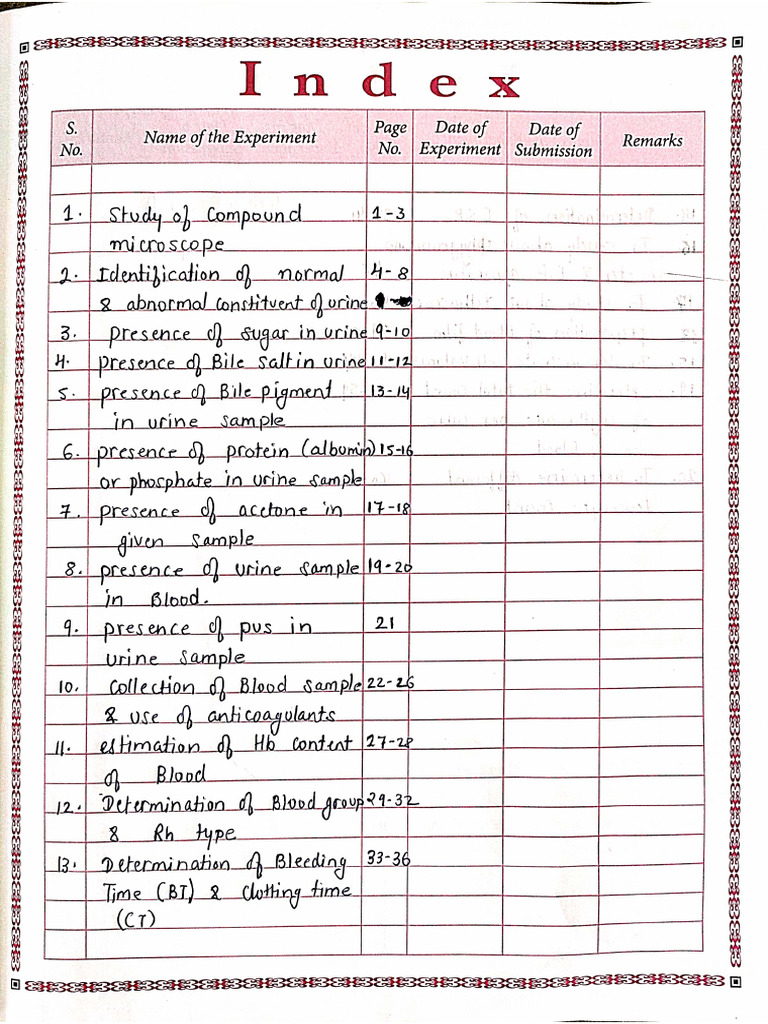 Index
S. No. Name of the Experiment Page No. Date of Experiment Date of Submission Remarks
1. Study of Compound 1-3
microscope
2. Identification of normal 4-8
& abnormal constituent of urine
3. presence of sugar in urine 9-10
4. presence of Bile salt in urine 11-12
5. presence of Bile pigment 13-14
in urine sample
6. presence of protein (albumin) 15-16
or phosphate in urine sample
7. presence of acetone in 17-18
given sample
8. presence of urine sample 19-20
in Blood.
9. presence of pus in 21
urine sample
10. collection of Blood sample 22-26
& use of anticoagulants
11. estimation of Hb content 27-28
of Blood
12. Determination of Blood group 29-32
& Rh type
13. Determination of Bleeding 33-36
Time (BT) & Clotting time
(CT)